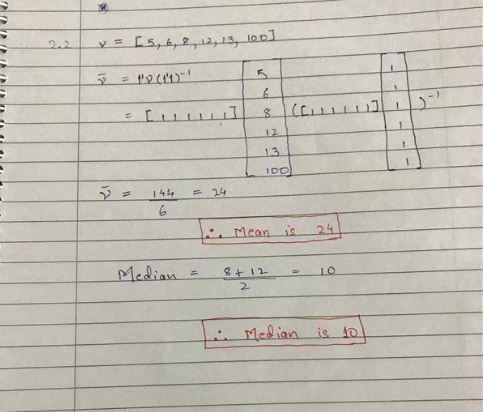 2.2 v = [5, 6, 8, 12, 13, 100]
v̄ = 1'v (1'1)⁻¹
= [1 1 1 1 1 1] [5 6 8 12 13 100] ([1 1 1 1 1 1] [1 1 1 1 1 1])⁻¹
v̄ = 144/6 = 24
∴ Mean is 24
Median = 8+12/2 = 10
∴ Median is 10